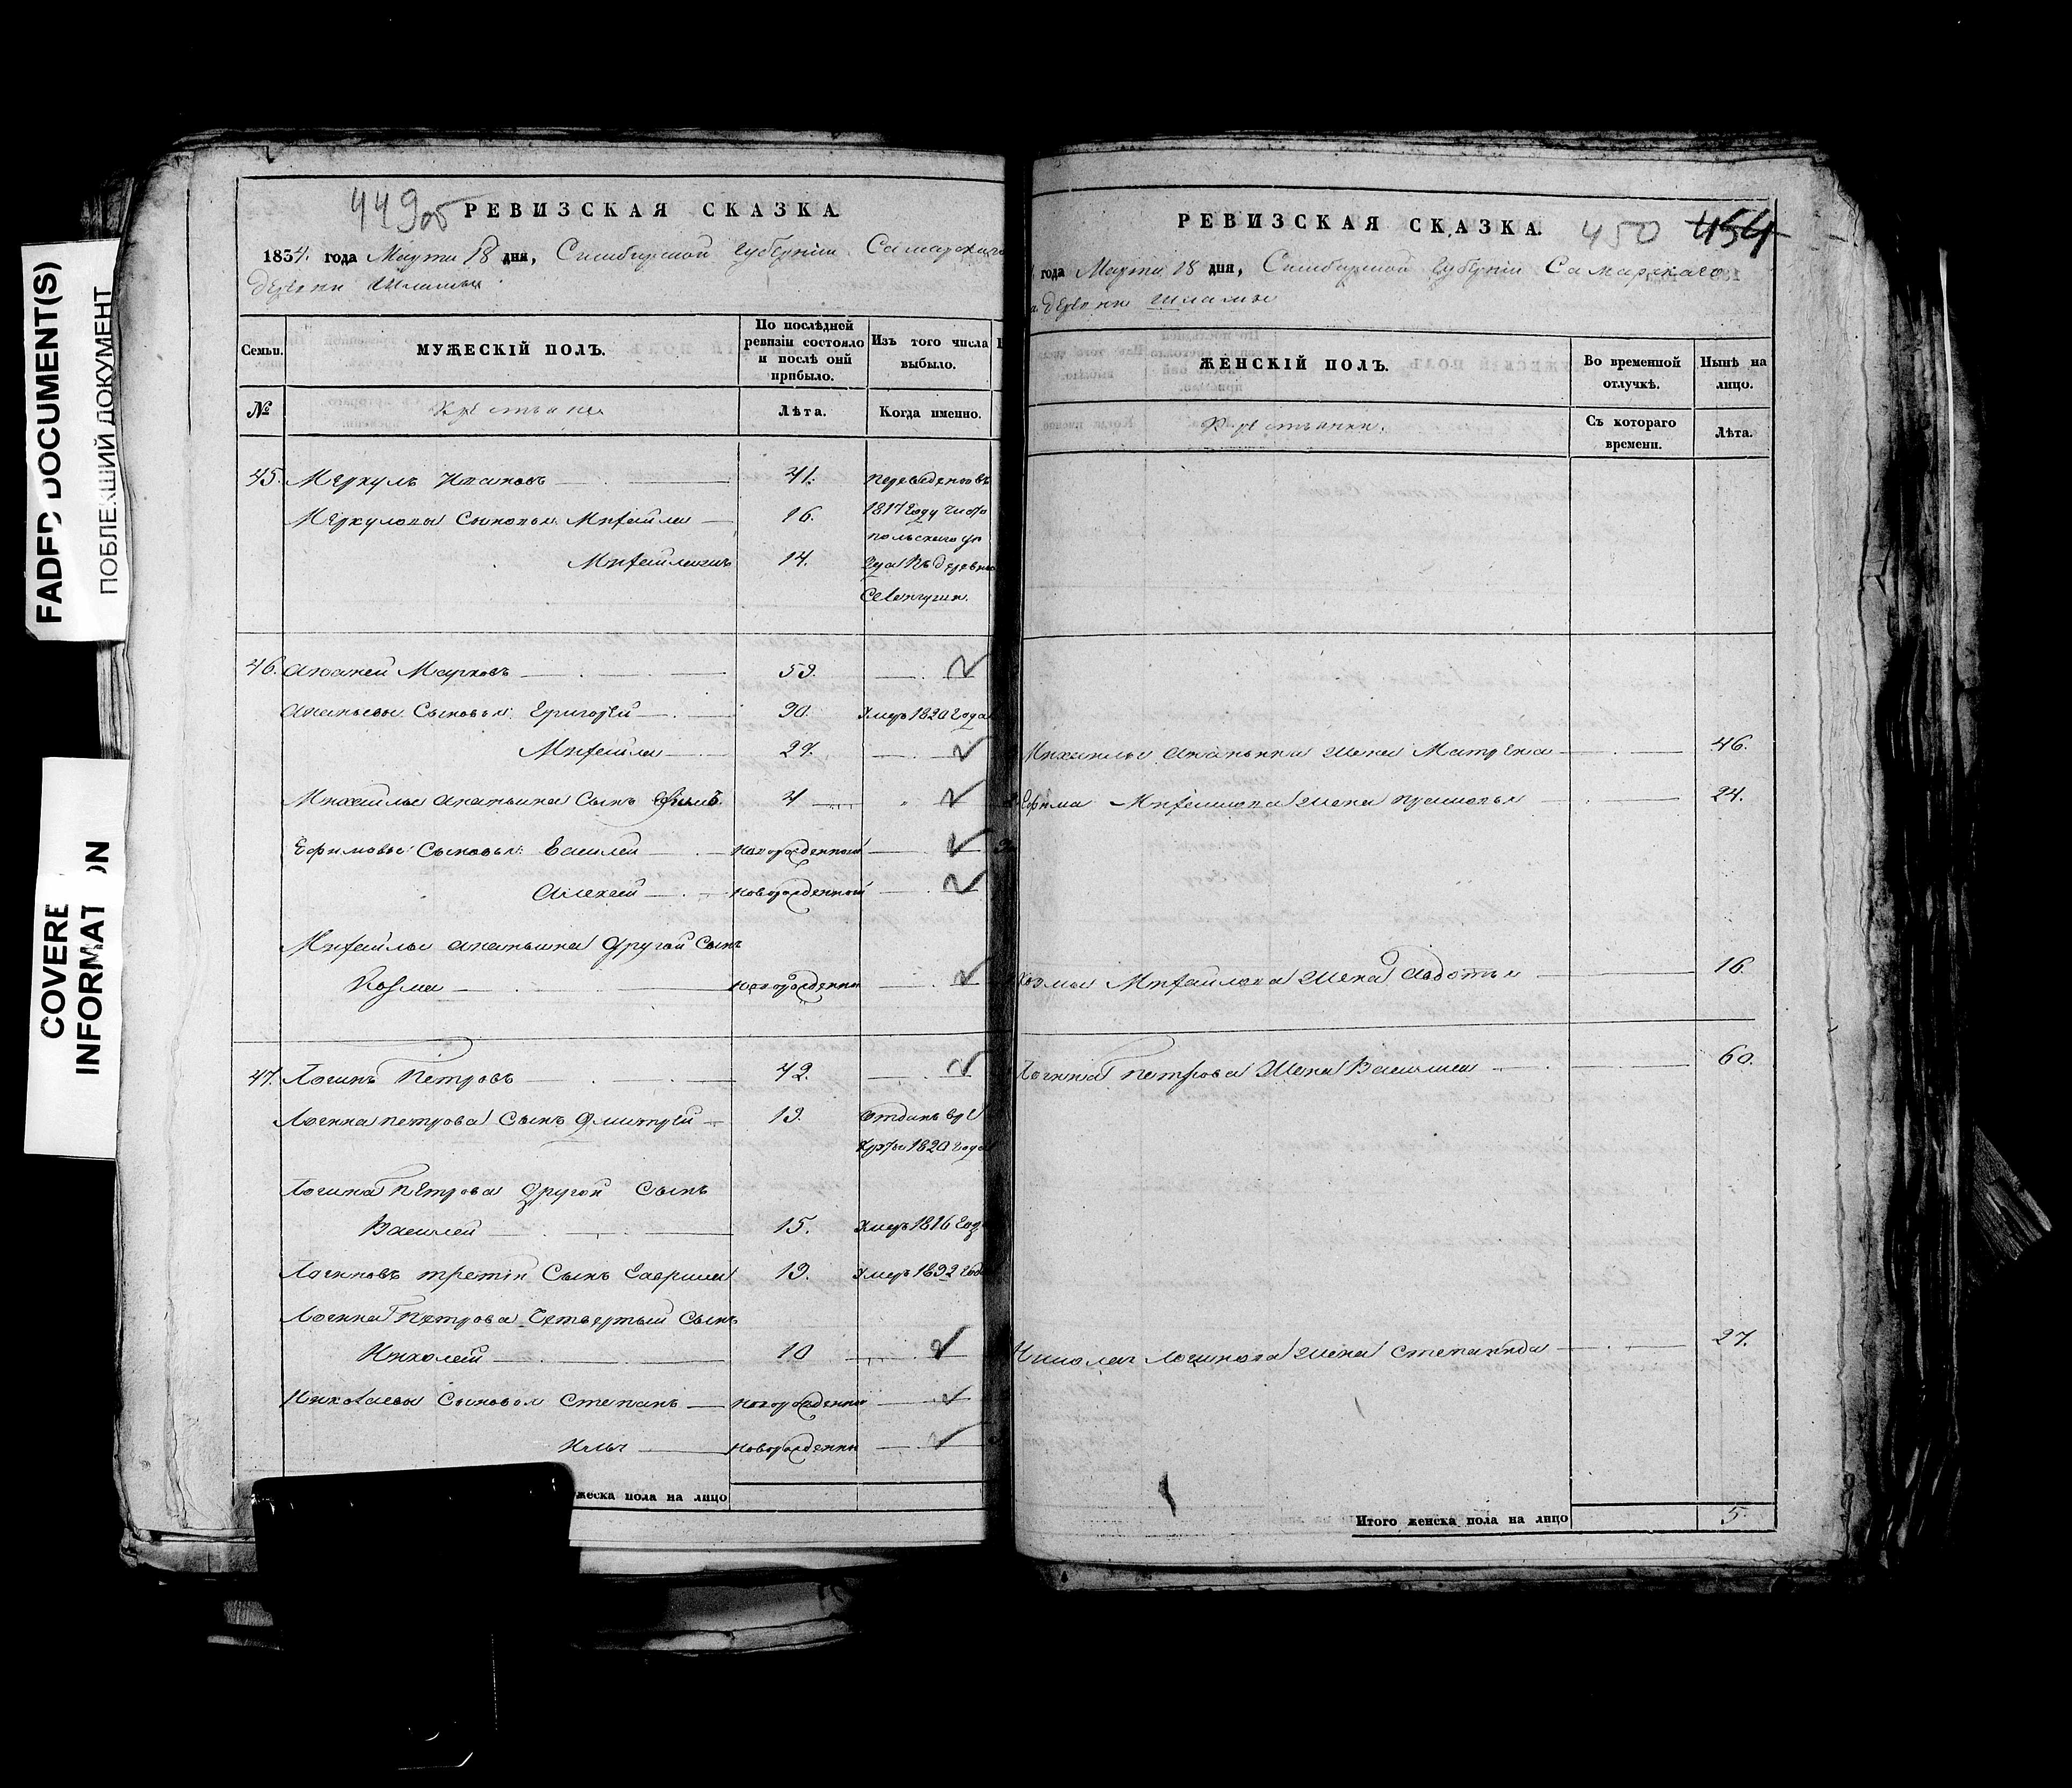 FADED DOCUMENT(S)
ПОБЛЕКШИЙ ДОКУМЕНТ
COVERE ON
INFORMAT
449об
РЕВИЗСКАЯ СКАЗКА
1834. года Марта 18 дня, Симбирской губернiи Самарскаго
деревни Шламы
Семьи.
МУЖЕСКIЙ ПОЛЪ.
По послѣдней ревизiи состояло и послѣ онй прибыло.
Изъ того числа выбыло.
№
Крестьяне
Лѣта.
Когда именно.
45. Меркулъ 41. Переведенъ въ
Меркуловы Сыновья Михайла 16. 1817 году Чисто
польского уѣ
14. зда въ деревню
46. Ананей Марковъ 53.
Ананьевы Сыновья Григорей 30. Умеръ 1820 года
Михайла 27.
Михайлы Ананьина Сынъ 4
Ефимовы Сыновья Василей новорожденной
Алексей новорожденной
Михайлы Ананьина другой Сынъ
Козма новорожденны
47. Логинъ Петровъ 42.
Логина Петрова Сынъ Дмитрей 19. Отданъ въ ре
круты 1820 года
Логина Петрова другой Сынъ
Василей 15. Умеръ 1816 года
Логиновъ третiй Сынъ Гаврила 13. Умеръ 1832 года
Логина Петрова Четвертый Сынъ
Николай 10
Николаевы Сыновья Степанъ новорожденны
Илья новорожденны
жеска пола на лицо
РЕВИЗСКАЯ СКАЗКА.
450 454
года Марта 18 дня, Симбирской губернiи Самарскаго
деревни Шламы
ЖЕНСКIЙ ПОЛЪ.
Во временной отлучкѣ.
Нынѣ на лицо.
Крестьянки.
Съ котораго времени.
Лѣта.
Михайлы Ананьина жена Матрена 46.
Ефима Михайлова жена Прасковья 24.
Козмы Михайлова жена Авдотья 16.
Логина Петрова жена Василиса 60.
Николая Логинова жена Степанида 27.
Итого женска пола на лицо 5